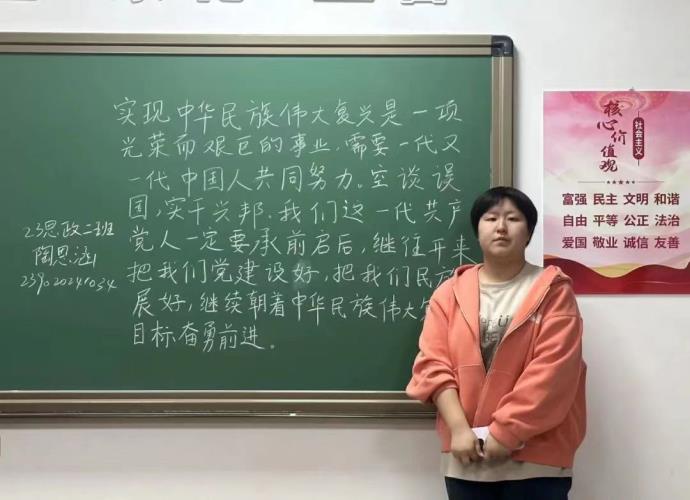 实现中华民族伟大复兴是一项
光荣而艰巨的事业.需要一代又
一代中国人共同努力。空谈误
国,实干兴邦.我们这一代共产
党人一定要承前启后,继往开来
把我们党建设好,把我们民
展好,继续朝着中华民族伟大
目标奋勇前进。
23思政二班
陶思涵
核心价值观
社会主义
富强 民主 文明 和谐
自由 平等 公正 法治
爱国 敬业 诚信 友善